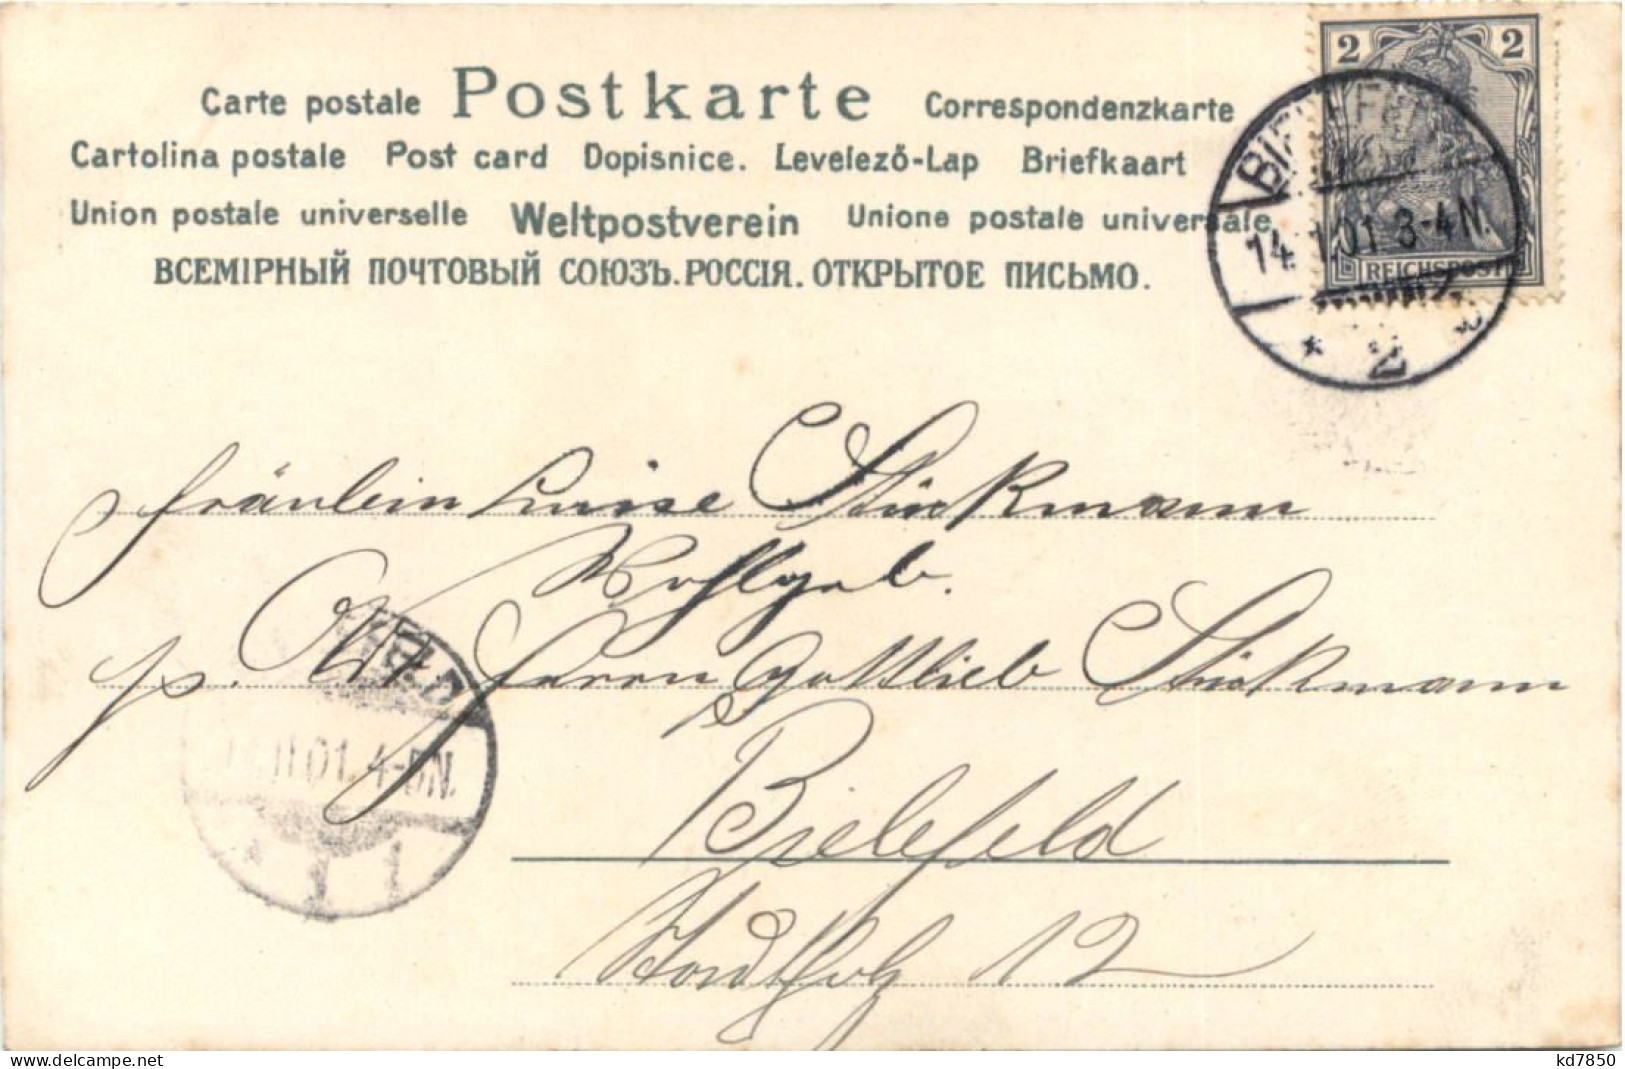 Carte postale Postkarte Correspondenzkarte
Cartolina postale Post card Dopisnice. Levelező-Lap Briefkaart
Union postale universelle Weltpostverein Unione postale universale
ВСЕМІРНЫЙ ПОЧТОВЫЙ СОЮЗЪ. РОССІЯ. ОТКРЫТОЕ ПИСЬМО.
2 2
REICHSPOST
14. 1.01 3-4N.
* 2
Fräulein Luise Stückmann
Wohlgeb.
p. Adr. Herrn Gottlieb Stückmann
Bielefeld
12
.01. 4-5N.
* 1
www.delcampe.net
kd7850